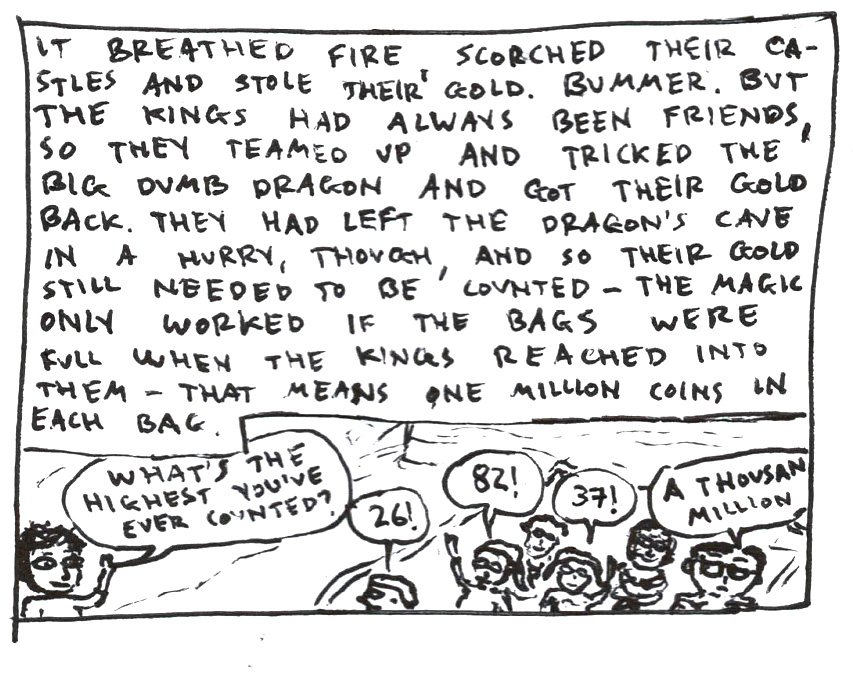 IT BREATHED FIRE SCORCHED THEIR CA-
STLES AND STOLE THEIR GOLD. BUMMER. BUT
THE KINGS HAD ALWAYS BEEN FRIENDS,
SO THEY TEAMED UP AND TRICKED THE
BIG DUMB DRAGON AND GOT THEIR GOLD
BACK. THEY HAD LEFT THE DRAGON'S CAVE
IN A HURRY, THOUGH, AND SO THEIR GOLD
STILL NEEDED TO BE COUNTED - THE MAGIC
ONLY WORKED IF THE BAGS WERE
FULL WHEN THE KINGS REACHED INTO
THEM - THAT MEANS ONE MILLION COINS IN
EACH BAG.
WHAT'S THE
HIGHEST YOU'VE
EVER COUNTED?
26!
82!
37!
A THOUSAN
MILLION